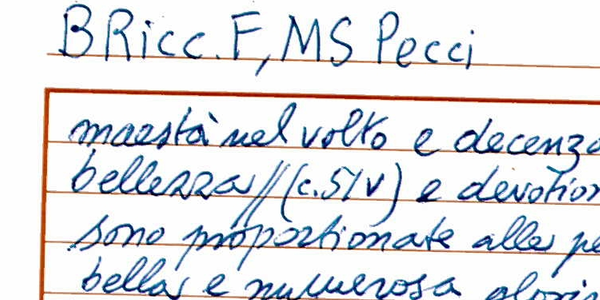 BRicc. F, MS Pecci
maestà nel volto e decenza
bellezza // (c. 51v) e devotion
sono proportionate alle pe
bella e numerosa